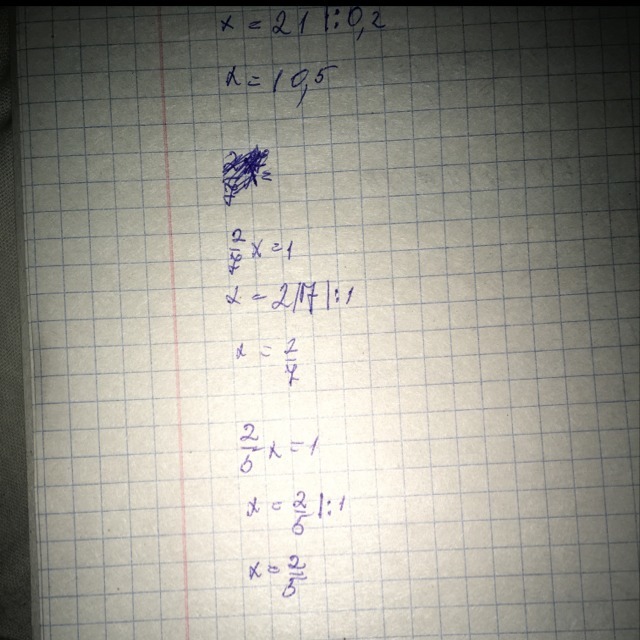 x = 21 |:0,2
x = 10,5
2/7 x = 1
x = 2/7 |:1
x = 2/7
2/5 x = 1
x = 2/5 |:1
x = 2/5